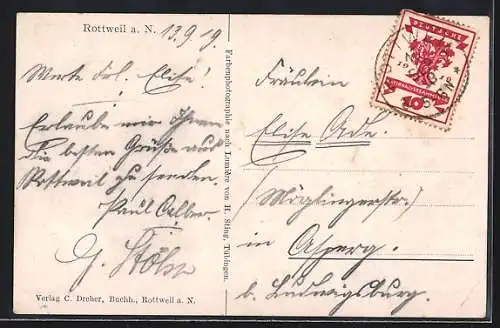 Rottweil a. N. 13.9.19.
Werte Frl. Elise!
Erlaube mir Ihnen
die besten Grüße aus
Rottweil zu senden.
Paul
Verlag C. Dreher, Buchh., Rottweil a. N.
Farbenphotographie nach Lumière von H. Sting, Tübingen.
DEUTSCHE
NATIONALVERSAMMLUNG
10
Fräulein
Elise Ade.
(Möglingerstr.)
in Asperg.
b. Ludwigsburg.